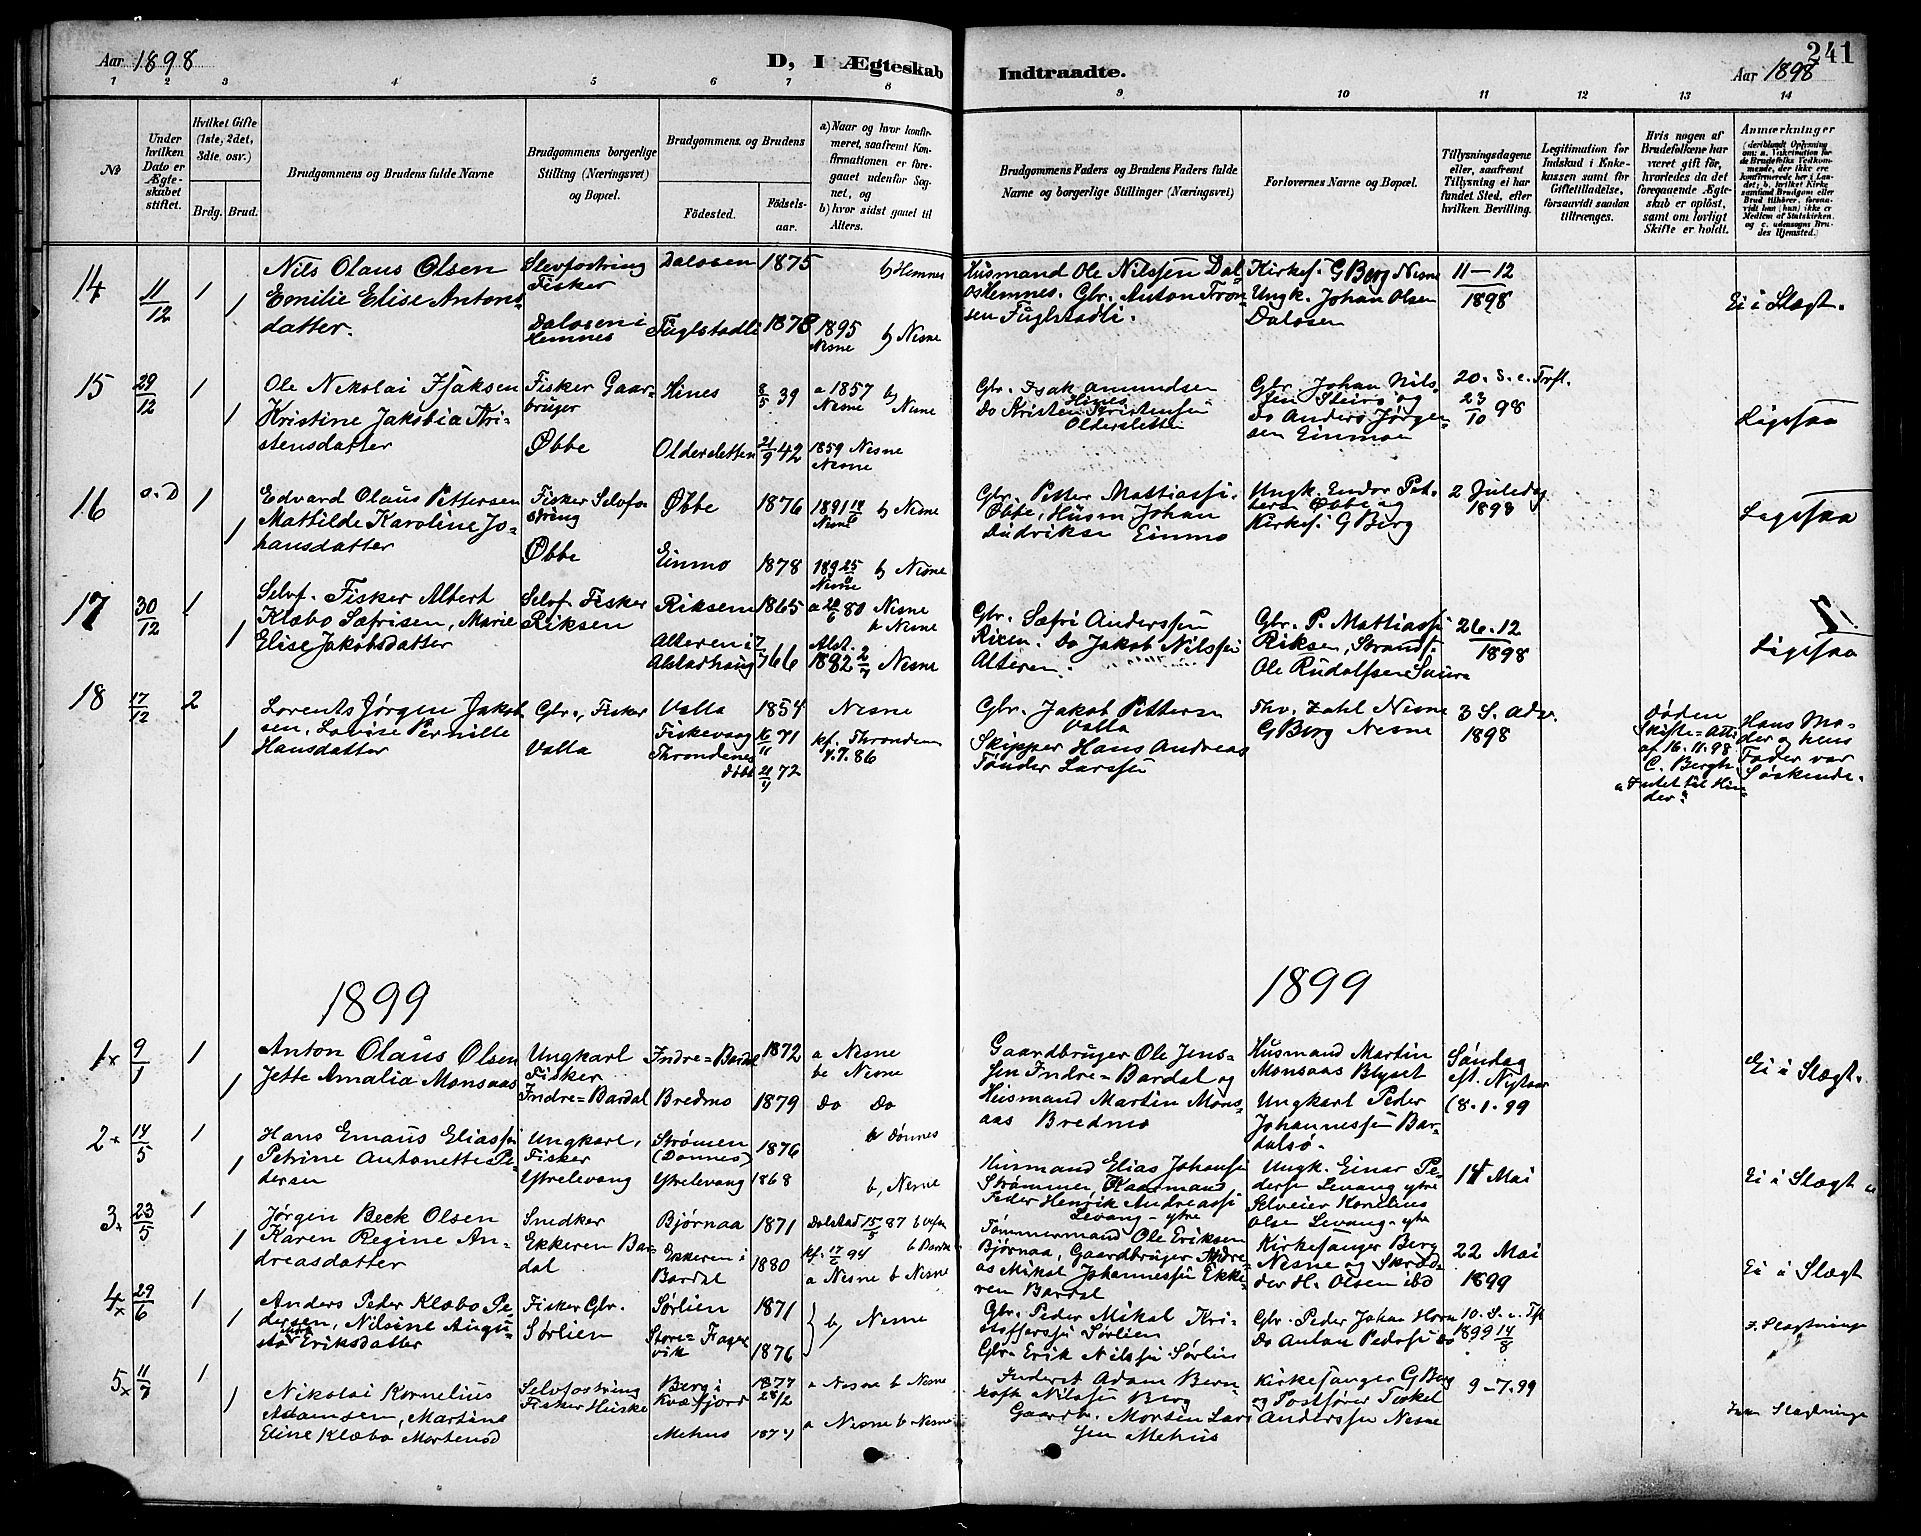 Aar 1898
D, I Ægteskab Indtraadte.
241
Aar 1898
1 2 3 4 5 6 7 8 9 10 11 12 13 14
№
Under hvilken Dato er Ægteskabet stiftet.
Hvilket Gifte (1ste, 2det, 3die, osv.)
Brdg. Brud.
Brudgommens og Brudens fulde Navne
Brudgommens borgerlige Stilling (Næringsvei) og Bopæl.
Brudgommens og Brudens
Fødested.
Fødselsaar.
a) Naar og hvor konfirmeret, saafremt Konfirmationen er foregaaet udenfor Sognet, og
b) hvor sidst gaaet til Alters.
Brudgommens Faders og Brudens Faders fulde Navne og borgerlige Stillinger (Næringsvei)
Forlovernes Navne og Bopæl.
Tillysningsdagene eller, saafremt Tillysning ei har fundet Sted, efter hvilken Bevilling.
Legitimation for Indskud i Enkekassen samt for Giftetilladelse, forsaavidt saadan tiltrænges.
Hvis nogen af Brudefolkene har været gift før, hvorledes da det foregaaende Ægteskab er opløst, samt om lovligt Skifte er holdt.
Anmærkninger
14 11/12 1 Nils Olaus Olsen
1 Emilie Elise Antons
datter.
Selvfostring
Fisker
Dalosen i
Hemnes
Dalosen 1875 b) Hemnes
Fuglstadli 1878 1895 Nesne b) Nesne
Husmand Ole Nilssen Dal
os Hemnes. Gbr. Anton Tron
sen Fuglstadli.
Kirkes. G Berg Nesne
Ungk. Johan Olsen
Dalosen
11-12
1898
Ei i Slægt.
15 29/12 1 Ole Nikolai Isaksen
1 Kristine Jakobia Kri-
stensdatter
Fisker Gaar-
bruger
Øbbe
Hines 8/5 39 a 1857 Nesne b) Nesne
Oldersletten 21/9 42 1859 Nesne
Nesne
Gbr. Isak Amundsen
Hines
Do Kristen Kristensen
Oldersletten
Gbr Johan Nils-
sen Steiro og
Do Anders Jørgen-
sen Einmoen
20. S. e. Trft.
23/10 98
Ligesaa
16 s. D 1 Edvard Olaus Pettersen
1 Mathilde Karoline Jo-
hansdatter
Fisker Selvfo-
string
Øbbe
Øbbe 1876 1891 Nesne b) Nesne
Einmo 1878 Nesne b) Nesne
Gbr. Petter Mattiassen
Øbbe, Husm Johan
Didrikse Einmo
Ungk. Endor Pet-
tersen Øbbe og
Kirkes. G Berg
2 Juledag
1898
Ligesaa
17 30/12 1 Selvf. Fisker Albert
Klæbo Sæfrisen, Marie
1 Elise Jakobsdatter
Selvf. Fisker
Riksen
Riksem 1865 80 Nesne
b Nesne
Alteren i
Alstadhaug 7/7 66
Alst.
1882 2/7 Nesne
Gbr. Sæfri Anderssen
Riksen. Do Jakob Nilssen
Alteren.
Gbr. P. Mattiassen
Riksen, Strands.
Ole Rudolfsen Saura
26.12
1898
Ligesaa
18 17/12 2 Lorents Jørgen Jakob-
sen, Lovise Pernille
1 Hansdatter
Gbr., Fisker
Valla
Valla 1854 Nesne
Fiskevaag 16/11 71
Throndenes
døbt 21/4 72
kf. Throndenes
4.7. 86
Gbr. Jakob Pettersen
Valla
Skipper Hans Andreas
Tønder Larssen
Thv. Zahl Nesne
G Berg Nesne
3 S. Adv.
1898
Døden
Skifte-Att.
af 16.11.98
C. Bergh
"Intet til Hin-
der"
Hans Mo-
der og hens
Fader var
Søskende.
1899 1899
1x 9/1 1 Anton Olaus Olsen
1 Jette Amalia Monsaas
Ungkarl
Fisker
Indre=Bardal
Indre=Bardal 1872 a Nesne
be Nesne
Bredmo 1879 Do Do
Gaardbruger Ole Jens-
sen Indre=Bardal og
Husmand Martin Mons-
aas Bredmo
Husmand Martin
Monsaas Blyset
Ungkarl Peder
Johannessen Bar-
dalsø.
Søndag
eft. Nytaar
(8.1.99
Ei i Slægt.
2x 14/5 1 Hans Emaus Eliassen
1 Petrine Antonette Pe-
dersen
Ungkarl,
Fisker
Ytrelevang
Strømen
(Dønnes) 1876 b Dønnes
Ytrelevang 1868 b, Nesne
Husmand Elias Johansen
Strømmen, Kaarmand
Peder Henrik Andreassen
Levang-ytre
Ungk. Einar Pe-
dersen Levang ytre
Selveier Kornelius
Olsen Levang-ytre
14 Mai
Ei i Slægt
3x 23/5 1 Jørgen Beck Olsen
1 Karen Regine An-
dreasdatter
Snedker
Ekkeren Bar-
dal
Bjørnaa 1871 Dolstad 15/5 87
Ekkeren i
Bardal 1880 kf. 94
a Nesne b Nesne
Tømmermand Ole Eriksen
Bjørnaa, Gaardbruger Andre-
as Mikal Johannessen Ekke-
ren Bardal
Kirkesanger Berg
Nesne og Skræd-
der H. Olsen ibd
22 Mai
1899
Ei i Slægt
4x 29/6 1 Anders Peder Klæbo Pe-
1 dersen, Nilsine Augu-
sta Eriksdatter
Fisker Gbr.
Sørlien
Sørlien 1871
Store=Fager
vik 1876
b) Nesne
Gbr. Peder Mikal Kri-
stoffersen Sørlien
Gbr. Erik Nilssen Sørlien
Gbr Peder Johan Horn
Do Anton Pedersen Do
10. S. e. Tft
1899
Slægtninge
5x 11/7 1 Nikolai Kornelius
1 Adamsen, Martine
Eline Klæbo Mortensd
Selvfostring
Fisker Huske
Berg i
Kvæfjord 1877
28/2
a Nesne b Nesne
Mehus 1874 a Nesne b Nesne
Inderst Adam Bern-
hoft Nilssen Berg
Gaardb. Morten Lars
sen Mehus
Kirkesanger G Berg
og Postfører Torkel
Anderssen Nesne
9-7.99
Slægtninge